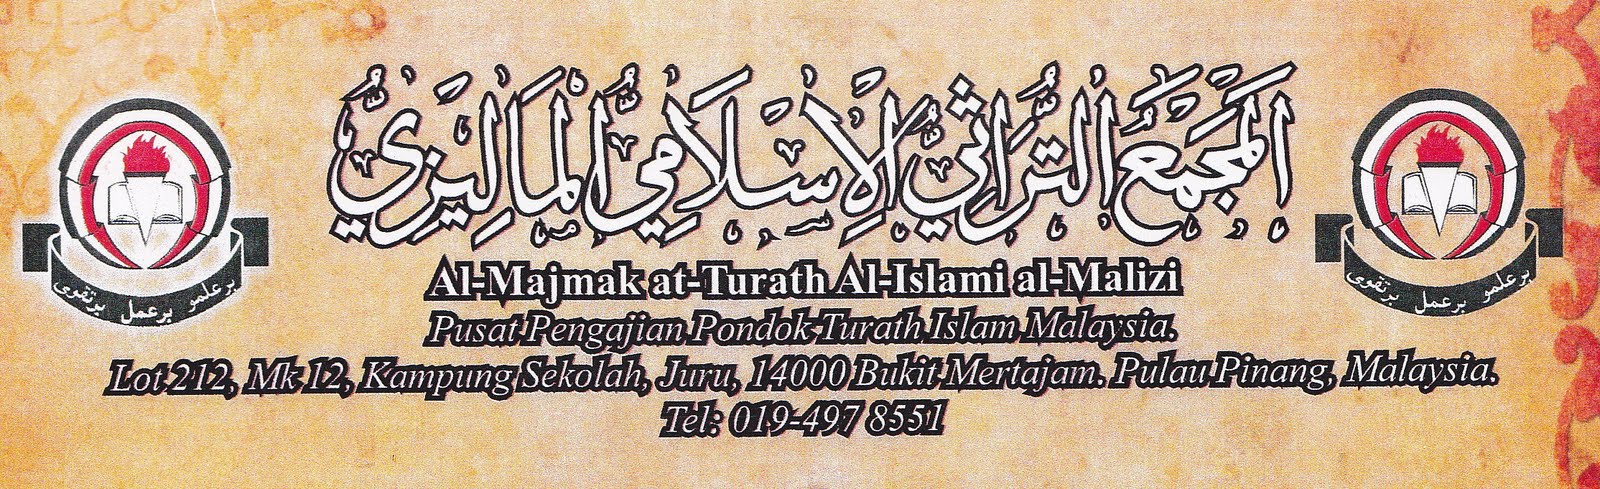 المَجْمَعُ التُّرَاثِيُّ الإِسْلَامِيُّ المَالِيزِيُّ
Al-Majmak at-Turath Al-Islami al-Malizi
Pusat Pengajian Pondok Turath Islam Malaysia.
Lot 212, Mk 12, Kampung Sekolah, Juru, 14000 Bukit Mertajam. Pulau Pinang, Malaysia.
Tel: 019-497 8551
برعلمو برعمل برتقوى
برعلمو برعمل برتقوى